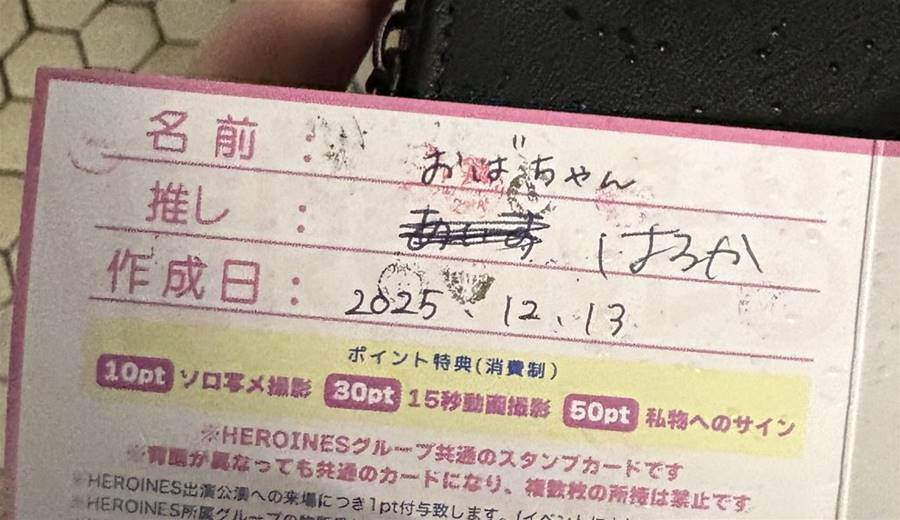 名前 : おばちゃん
推し : はるか
作成日 : 2025、12、13
ポイント特典(消費制)
10pt ソロ写メ撮影 30pt 15秒動画撮影 50pt 私物へのサイン
※HEROINESグループ共通のスタンプカードです
※背面が異なっても共通のカードになり、複数枚の所持は禁止です
※HEROINES出演公演への来場につき1pt付与致します。
※HEROINES所属グループの